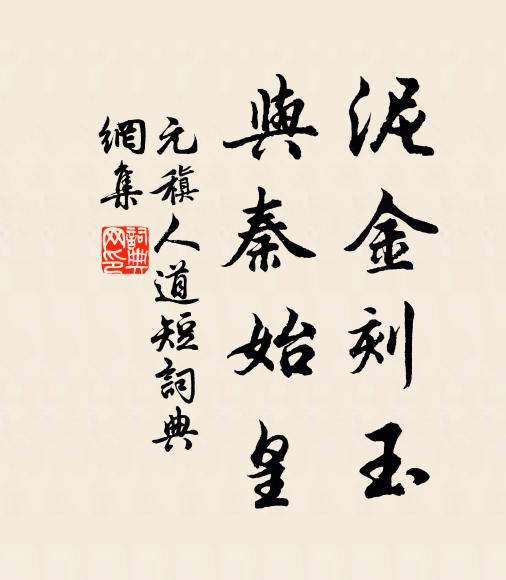 泥金刻玉
與秦始皇
元稹人道短詞典
網集
詞典
网印